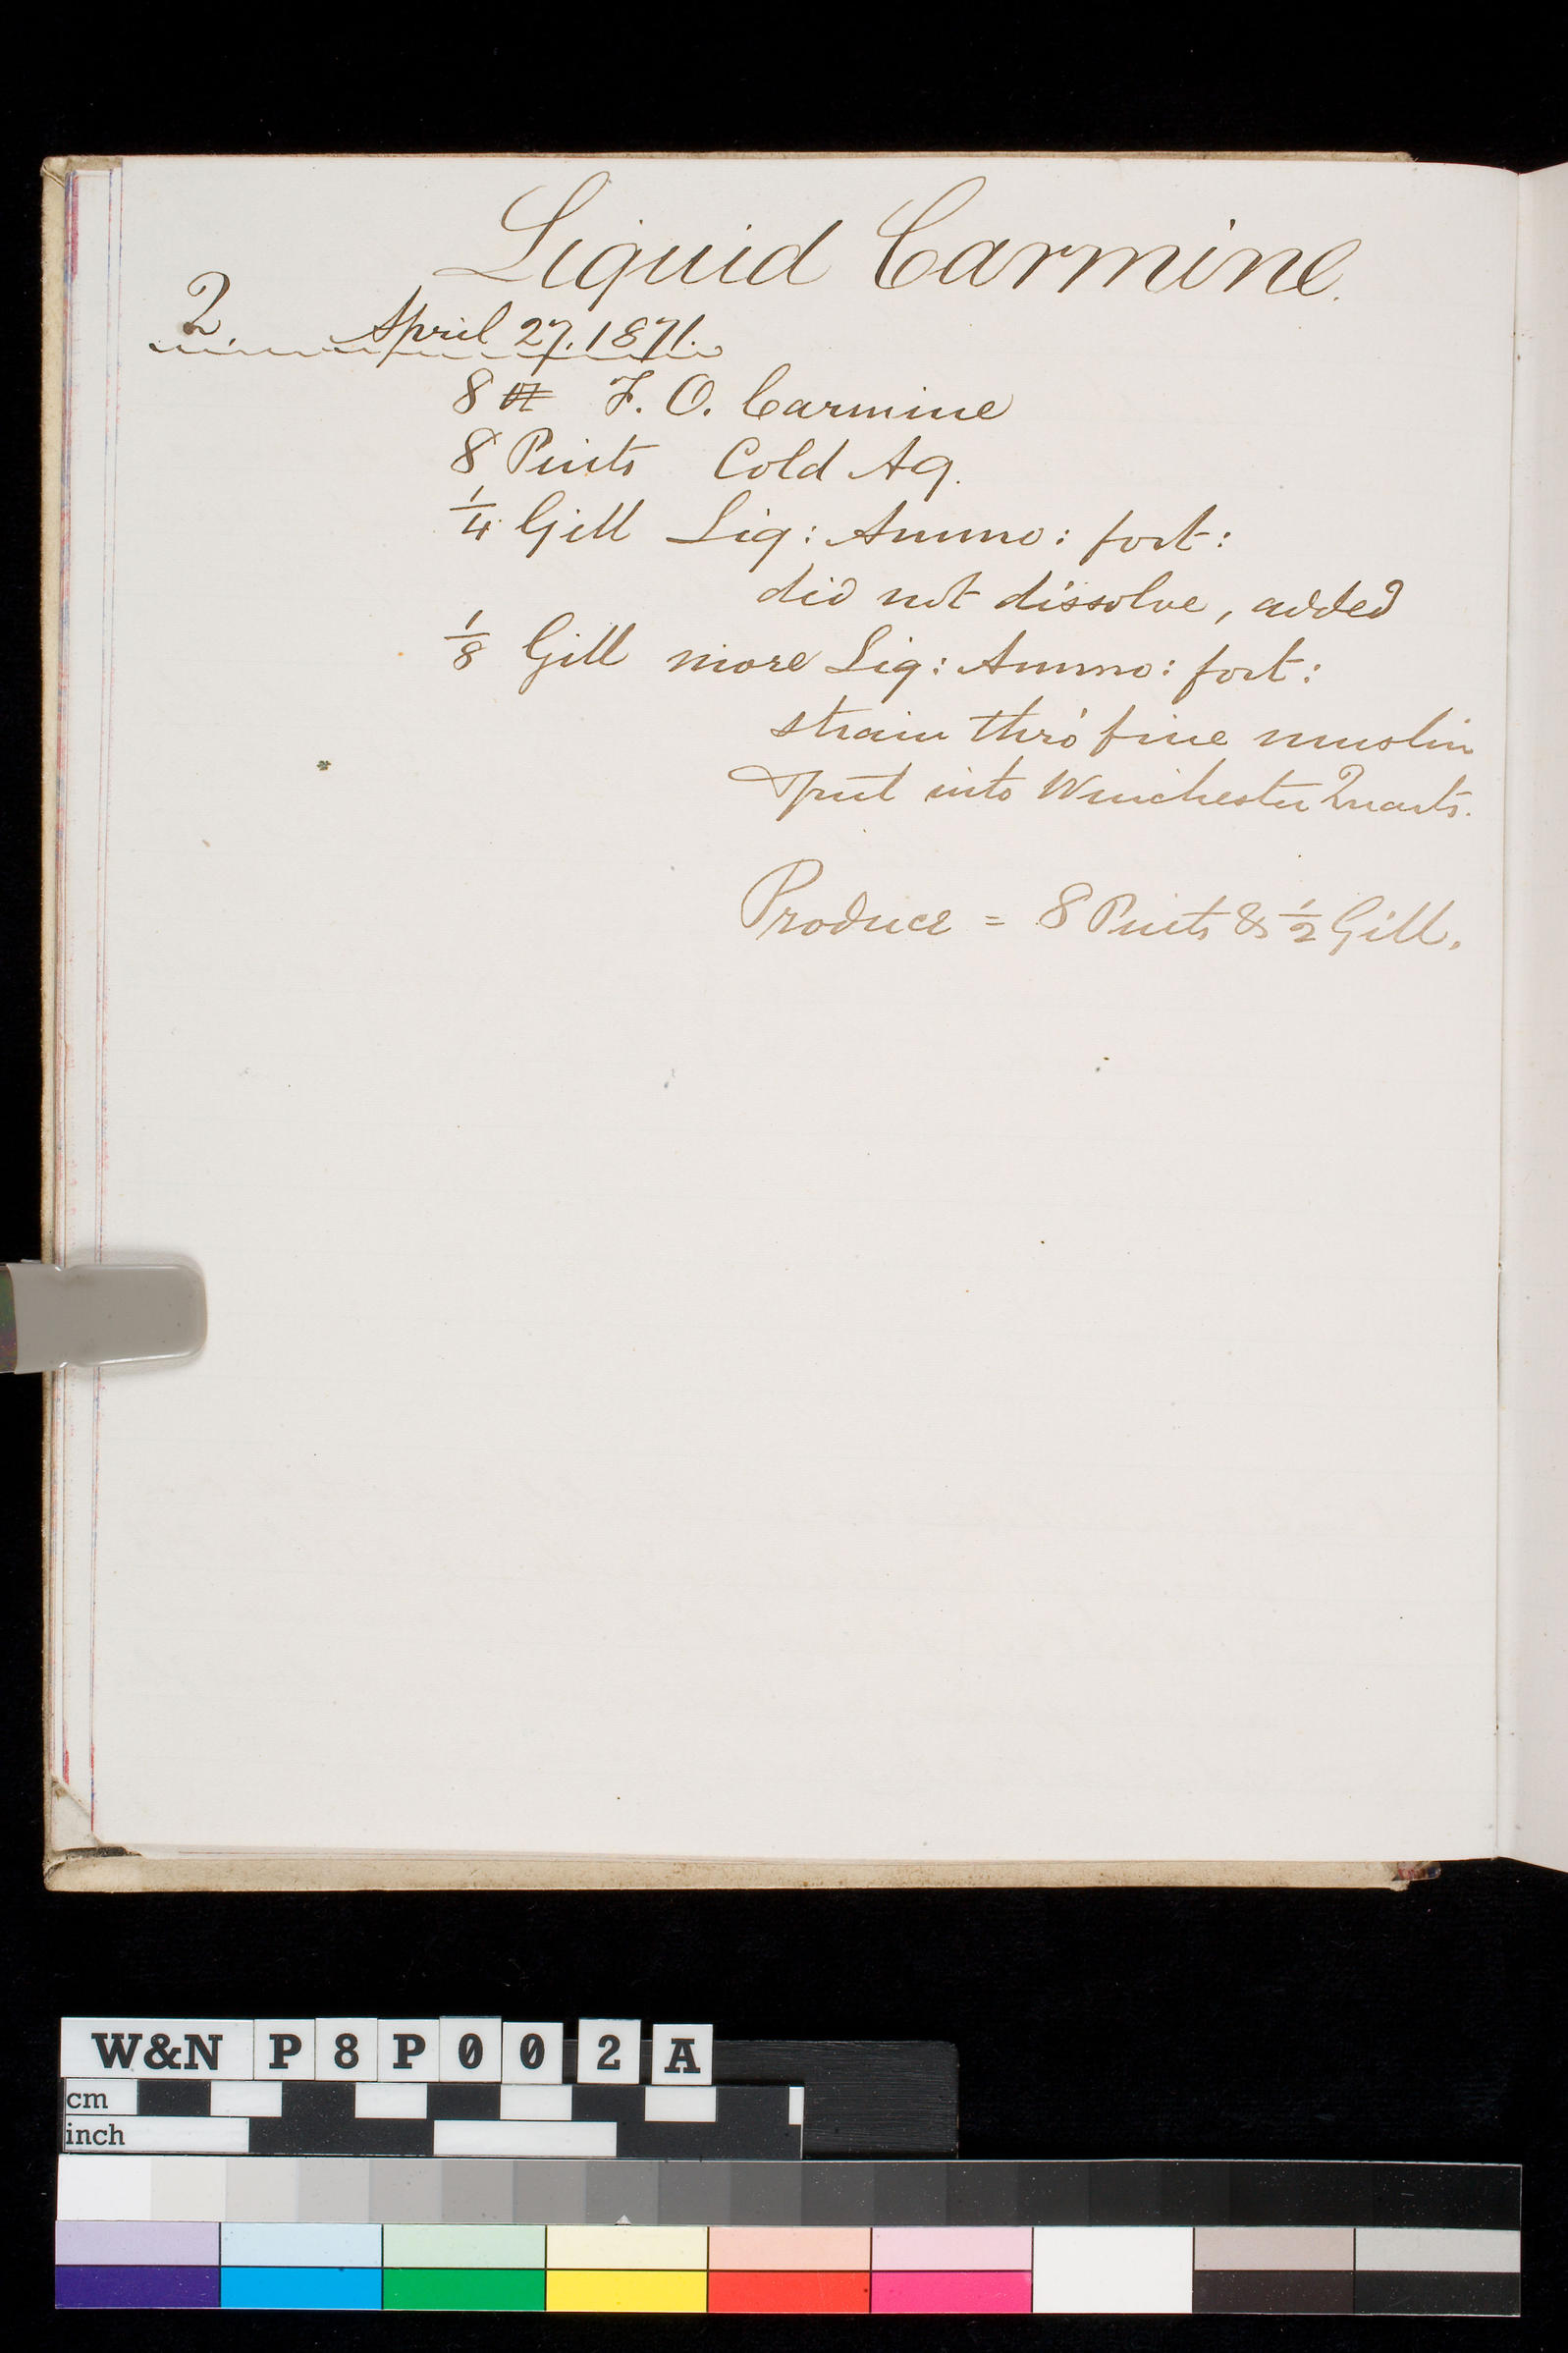 Liquid Carmine.
2. April 27. 1871.
8 F. O. Carmine
8 Pints Cold Aq.
1/4 Gill Liq: Ammo: fort:
did not dissolve, added
1/8 Gill more Liq: Ammo: fort:
strain thro' fine muslin
& put into Winchester Quarts.
Produce = 8 Pints & 1/2 Gill.
W&N P8P002A
cm
inch